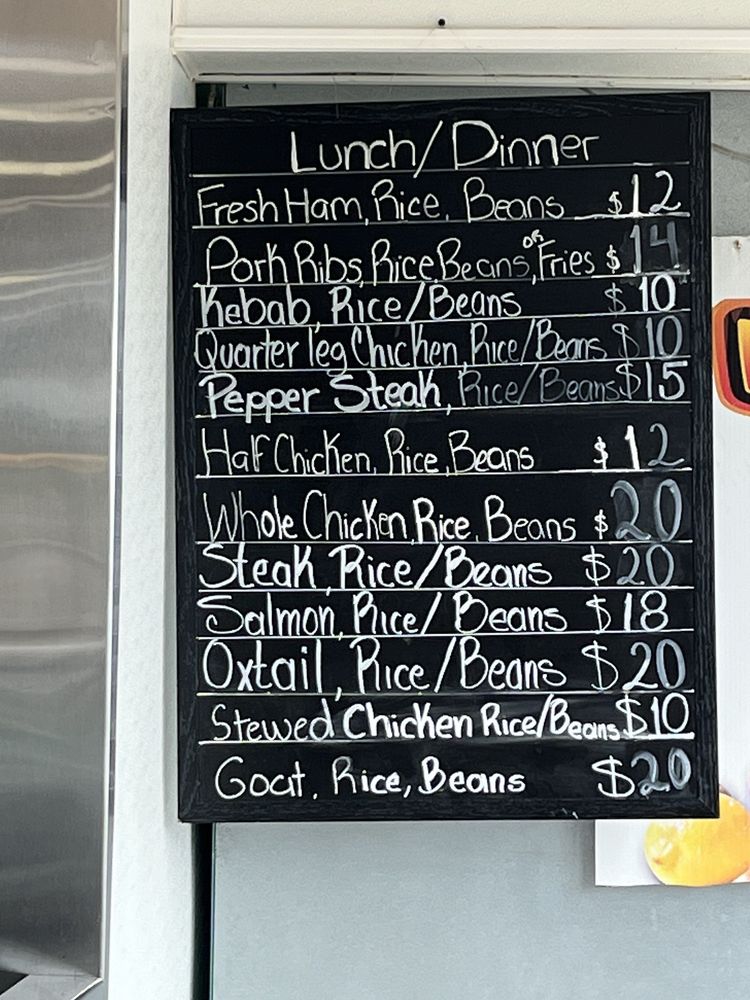 Lunch/Dinner
Fresh Ham, Rice, Beans $12
Pork Ribs, Rice, Beans, or Fries $14
Kebab, Rice/Beans $10
Quarter leg Chicken, Rice/Beans $10
Pepper Steak, Rice/Beans $15
Half Chicken, Rice, Beans $12
Whole Chicken, Rice, Beans $20
Steak, Rice/Beans $20
Salmon, Rice/Beans $18
Oxtail, Rice/Beans $20
Stewed Chicken Rice/Beans $10
Goat, Rice, Beans $20